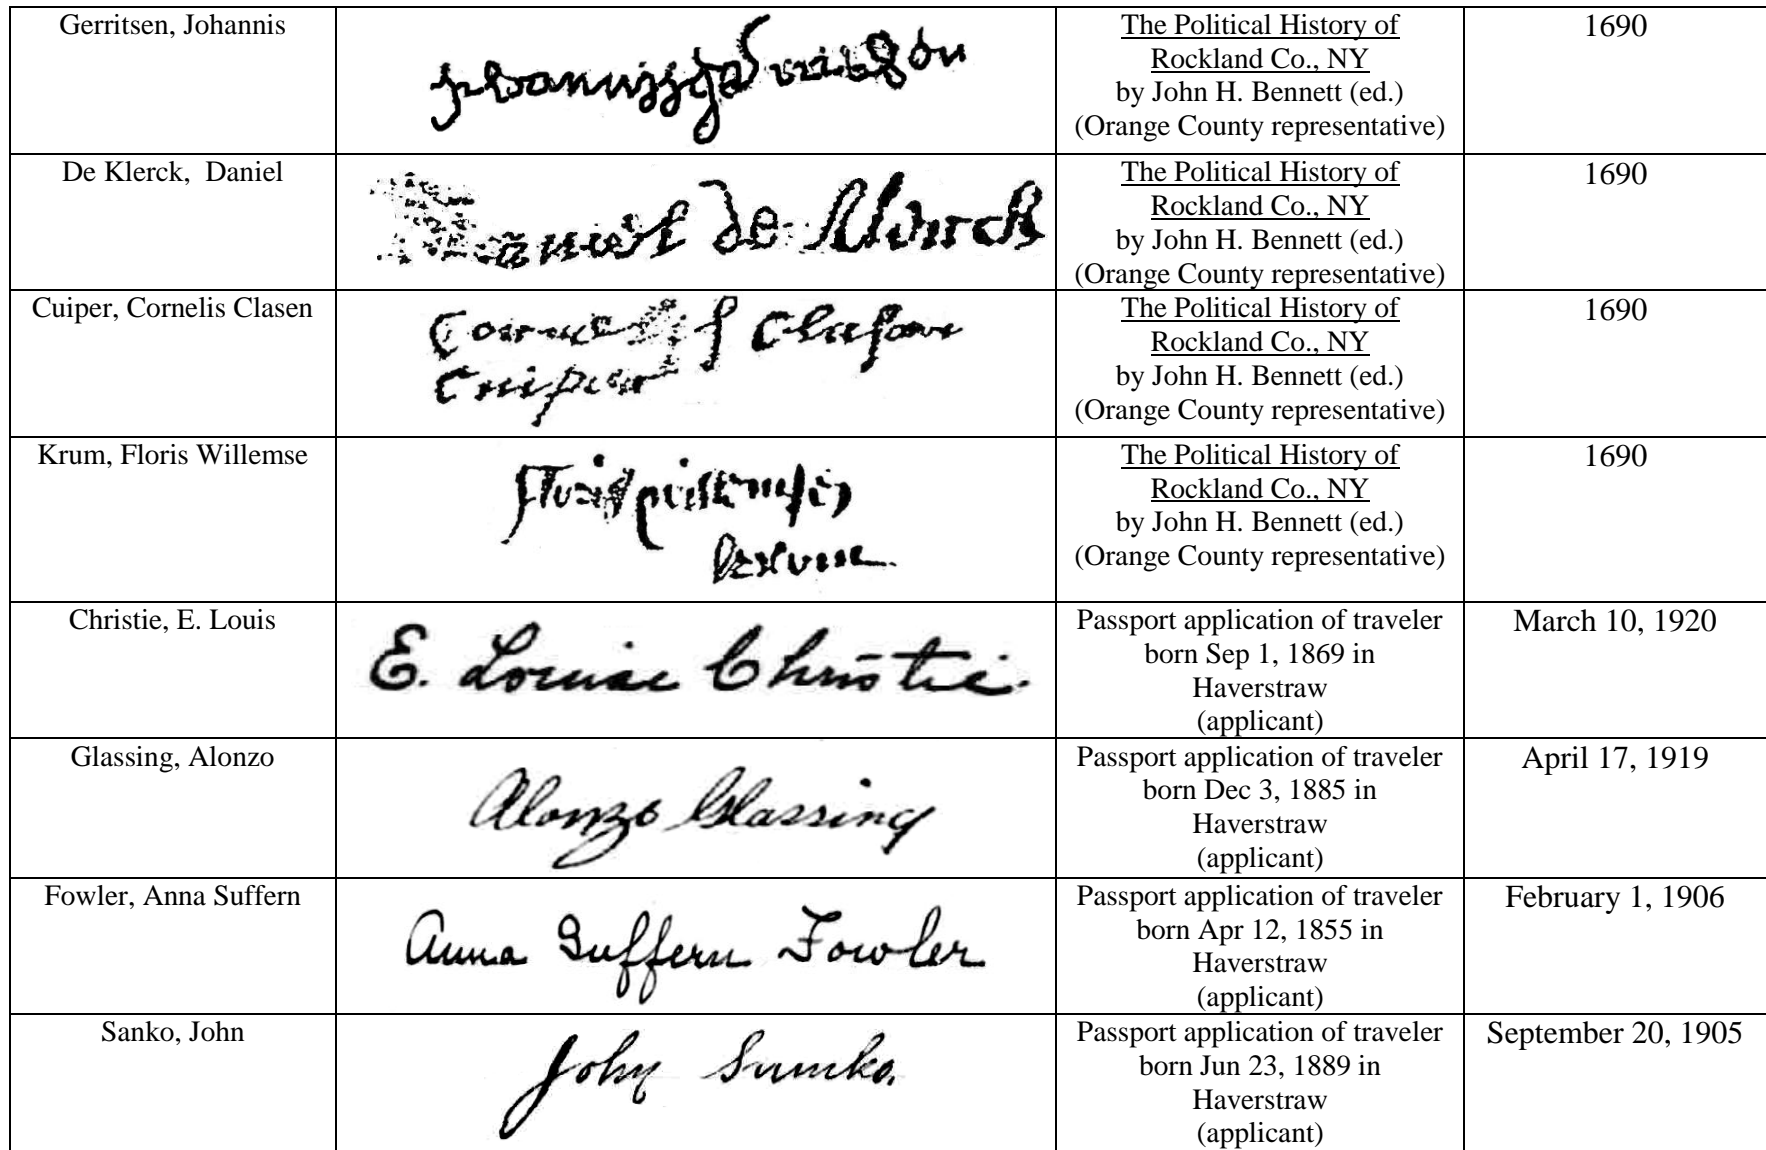 Gerritsen, Johannis
johannissgerritsen
The Political History of
Rockland Co., NY
by John H. Bennett (ed.)
(Orange County representative)
1690
De Klerck,  Daniel
Daniel de Klerck
The Political History of
Rockland Co., NY
by John H. Bennett (ed.)
(Orange County representative)
1690
Cuiper, Cornelis Clasen
Clasen
Cuiper
The Political History of
Rockland Co., NY
by John H. Bennett (ed.)
(Orange County representative)
1690
Krum, Floris Willemse
The Political History of
Rockland Co., NY
by John H. Bennett (ed.)
(Orange County representative)
1690
Christie, E. Louis
E. Louise Christie.
Passport application of traveler
born Sep 1, 1869 in
Haverstraw
(applicant)
March 10, 1920
Glassing, Alonzo
Alonzo Glassing
Passport application of traveler
born Dec 3, 1885 in
Haverstraw
(applicant)
April 17, 1919
Fowler, Anna Suffern
Anna Suffern Fowler
Passport application of traveler
born Apr 12, 1855 in
Haverstraw
(applicant)
February 1, 1906
Sanko, John
John Sumko.
Passport application of traveler
born Jun 23, 1889 in
Haverstraw
(applicant)
September 20, 1905